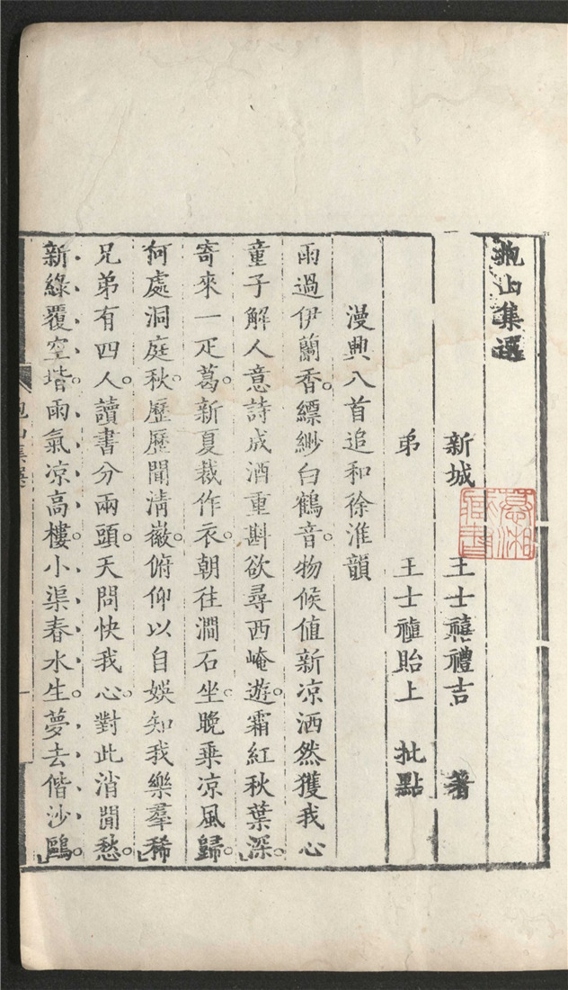 抱山集選
新城 王士禧禮吉 著
弟 王士禛貽上 批點
漫興八首追和徐淮韻
雨過伊蘭香縹緲白鶴音物候值新凉洒然獲我心
童子解人意詩成酒重斟欲尋西崦遊霜紅秋葉深
寄來一疋葛新夏裁作衣朝往澗石坐晚乗凉風歸
何處洞庭秋歷歷聞清徽俯仰以自娛知我樂羣稀
兄弟有四人讀書分兩頭天問快我心對此消閒愁
新綠覆空堦雨氣凉高樓小渠春水生夢去偕沙鷗
抱山集選
一
慕湘藏書